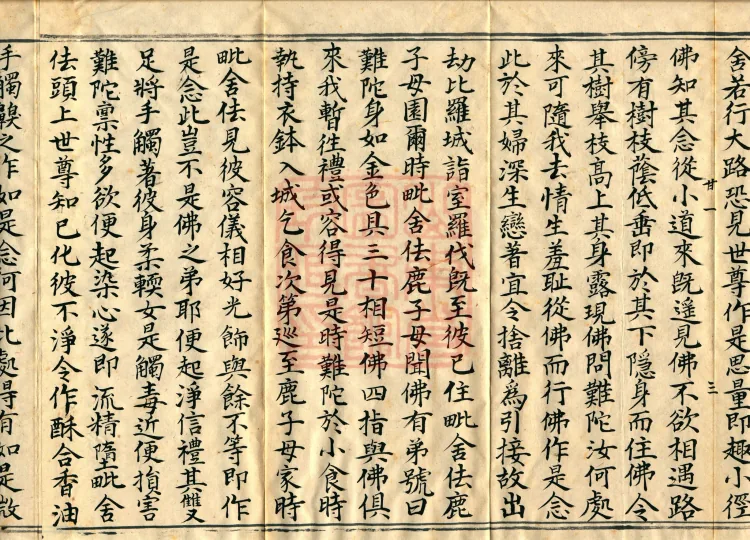 舍若行大路恐見世尊作是思量即趣小徑
佛知其念從小道來旣遥見佛不欲相遇路
傍有樹枝蔭低垂即於其下隱身而住佛令
其樹舉枝髙上其身露現佛問難陀汝何處
來可隨我去情生羞耻從佛而行佛作是念
此於其婦深生戀著宜令捨離爲引接故出
劫比羅城詣室羅伐旣至彼已住毗舍佉鹿
子母園爾時毗舍佉鹿子母聞佛有弟號曰
難陀身如金色具三十相短佛四指與佛俱
來我暫徃禮或容得見是時難陀於小食時
執持衣鉢入城乞食次第廵至鹿子母家時
毗舍佉見彼容儀相好光飾與餘不等即作
是念此豈不是佛之弟耶便起淨信禮其雙
足將手觸著彼身柔輭女是觸毒近便損害
難陀禀性多欲便起染心遂即流精墮毗舍
佉頭上世尊知已化彼不淨令作酥合香油
手觸齅之作如是念何因此處得有如是殺
廿一
三